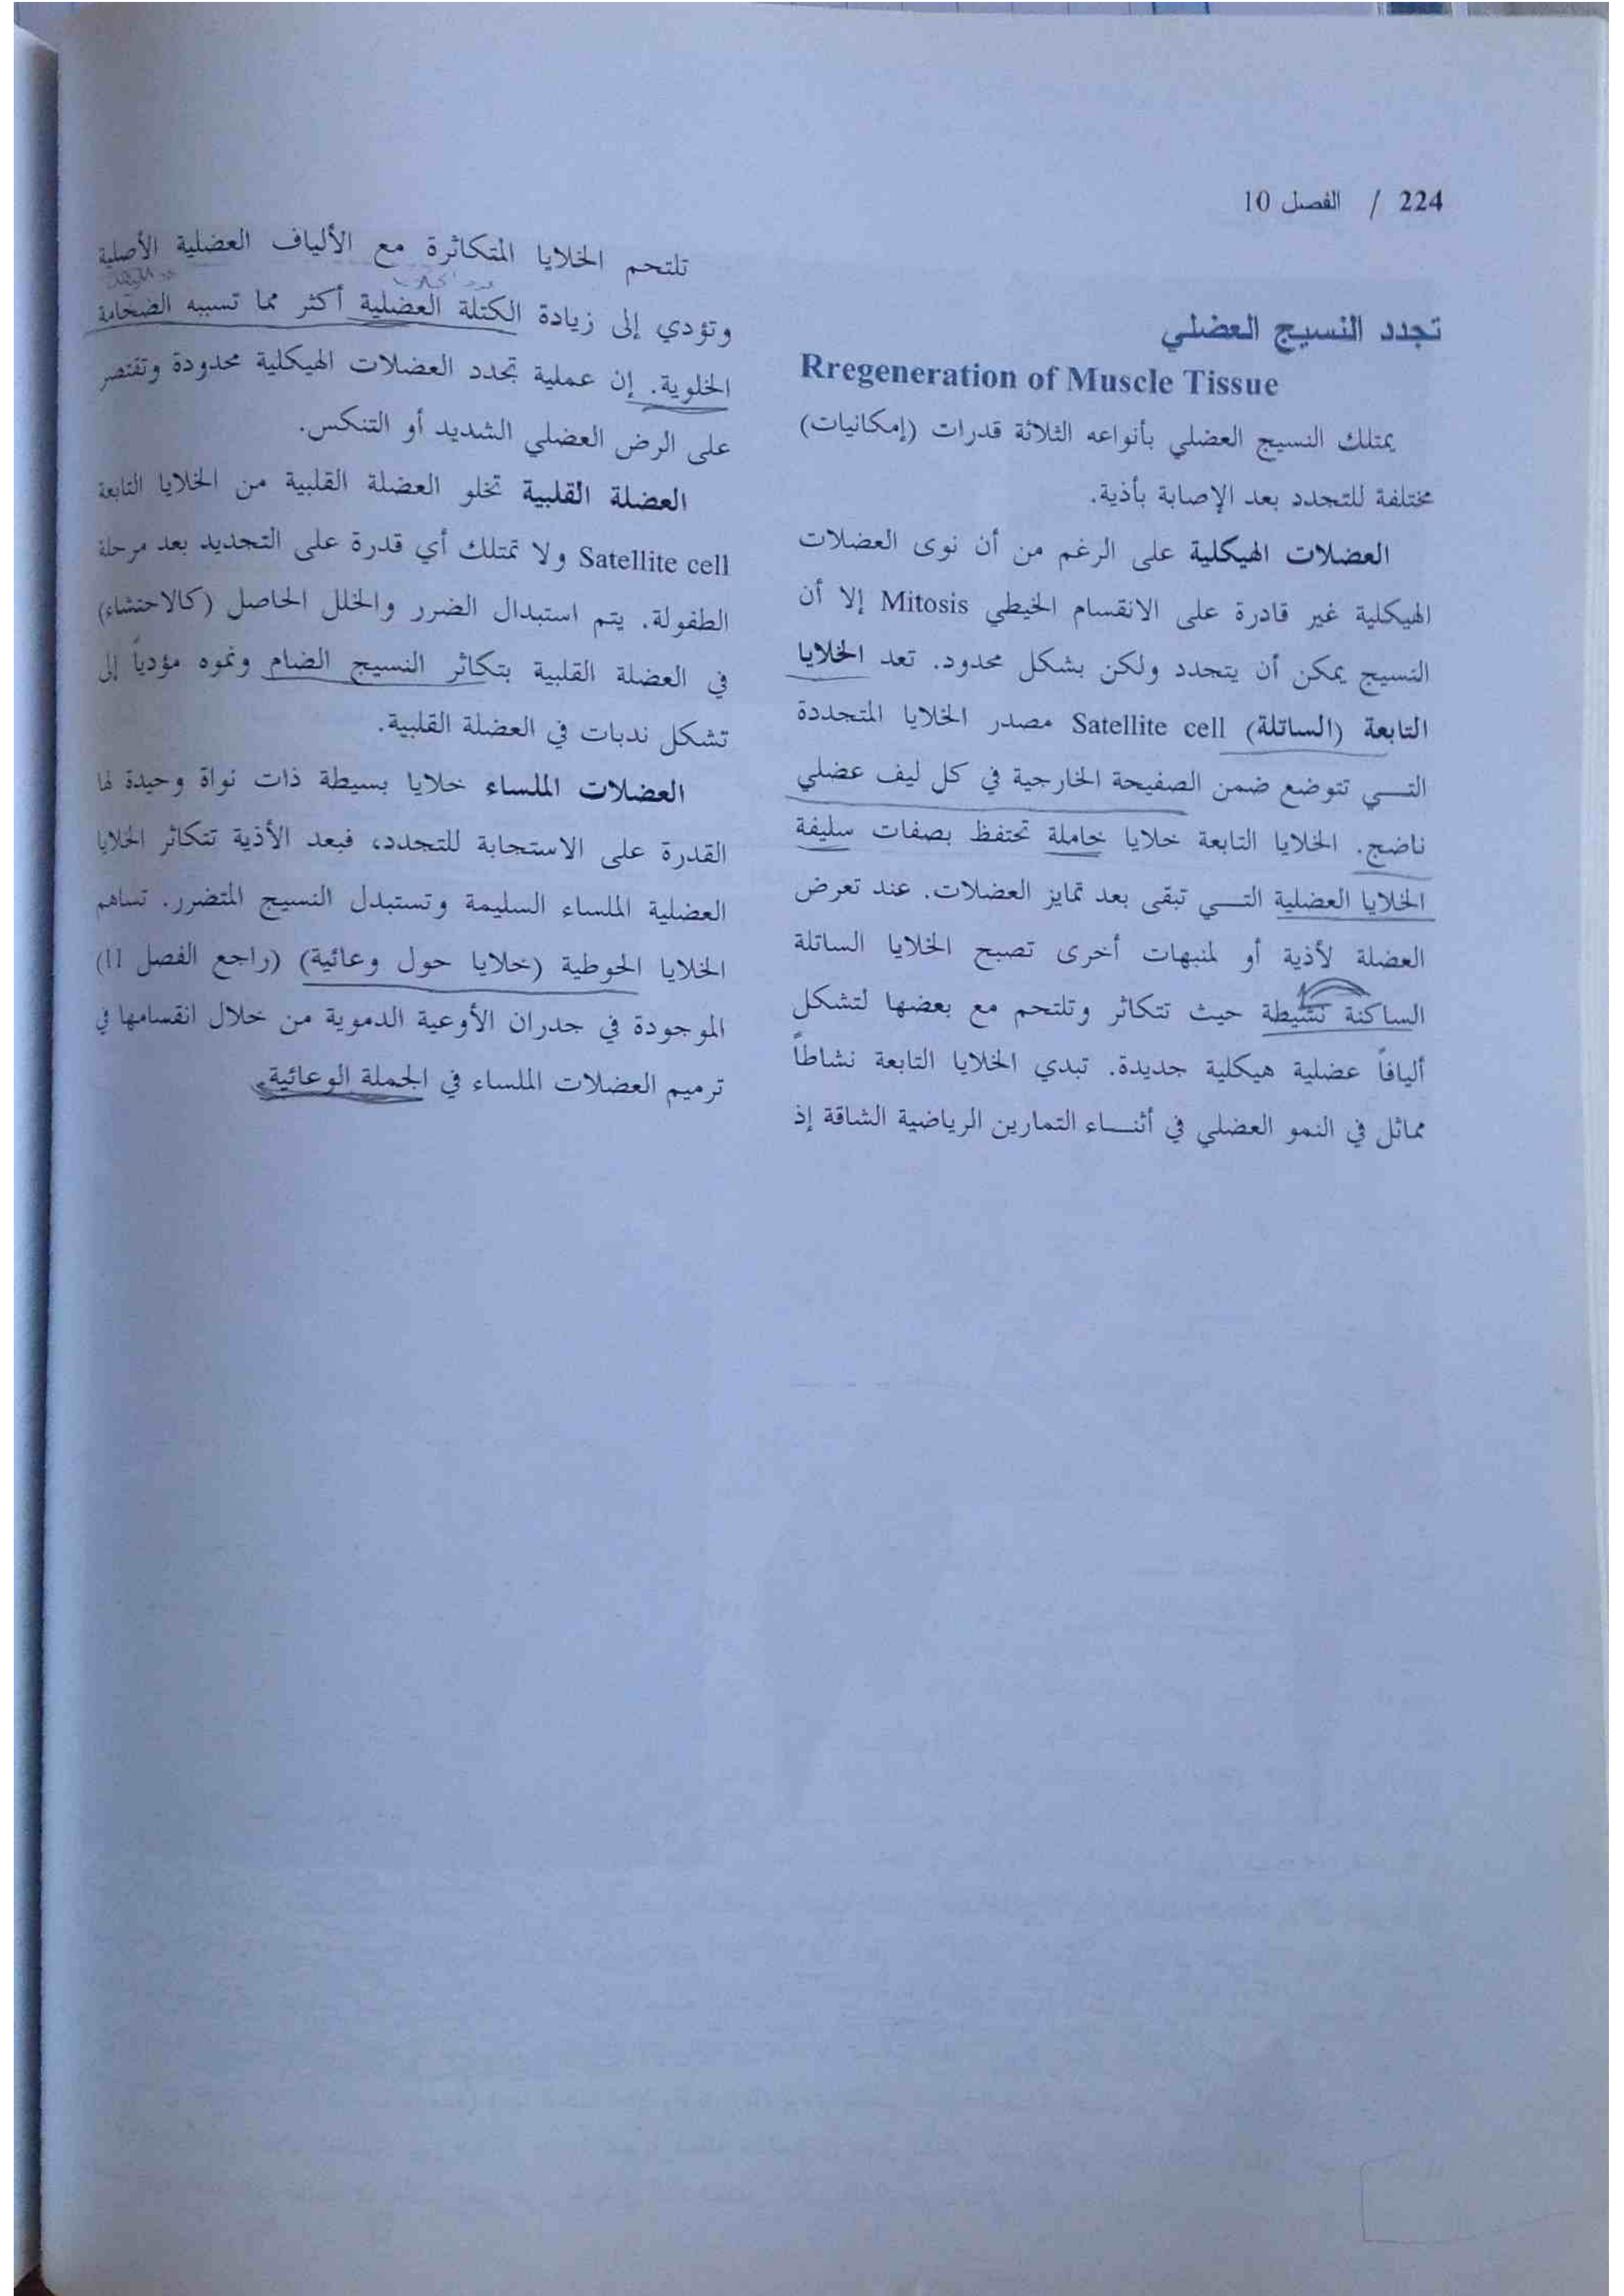 224 / الفصل 10
تجدد النسيج العضلي
Rregeneration of Muscle Tissue
يمتلك النسيج العضلي بأنواعه الثلاثة قدرات (إمكانيات)
مختلفة للتجدد بعد الإصابة بأذية.
العضلات الهيكلية على الرغم من أن نوى العضلات
الهيكلية غير قادرة على الانقسام الخيطي Mitosis إلا أن
النسيج يمكن أن يتجدد ولكن بشكل محدود. تعد الخلايا
التابعة (الساتلة) Satellite cell مصدر الخلايا المتجددة
التـــي تتوضع ضمن الصفيحة الخارجية في كل ليف عضلي
ناضج. الخلايا التابعة خلايا خاملة تحتفظ بصفات سليفة
الخلايا العضلية التـــي تبقى بعد تمايز العضلات. عند تعرض
العضلة لأذية أو لمنبهات أخرى تصبح الخلايا الساتلة
الساكنة نشيطة حيث تتكاثر وتلتحم مع بعضها لتشكل
أليافاً عضلية هيكلية جديدة. تبدي الخلايا التابعة نشاطاً
مماثل في النمو العضلي في أثنـــاء التمارين الرياضية الشاقة إذ
تلتحم الخلايا المتكاثرة مع الألياف العضلية الأصلية
وتؤدي إلى زيادة الكتلة العضلية أكثر مما تسببه الضخامة
الخلوية. إن عملية تجدد العضلات الهيكلية محدودة وتقتصر
على الرض العضلي الشديد أو التنكس.
العضلة القلبية تخلو العضلة القلبية من الخلايا التابعة
Satellite cell ولا تمتلك أي قدرة على التجديد بعد مرحلة
الطفولة. يتم استبدال الضرر والخلل الحاصل (كالاحتشاء)
في العضلة القلبية بتكاثر النسيج الضام ونموه مؤدياً إلى
تشكل ندبات في العضلة القلبية.
العضلات الملساء خلايا بسيطة ذات نواة وحيدة لها
القدرة على الاستجابة للتجدد، فبعد الأذية تتكاثر الخلايا
العضلية الملساء السليمة وتستبدل النسيج المتضرر. تساهم
الخلايا الحوطية (خلايا حول وعائية) (راجع الفصل 11)
الموجودة في جدران الأوعية الدموية من خلال انقسامها في
ترميم العضلات الملساء في الجملة الوعائية.